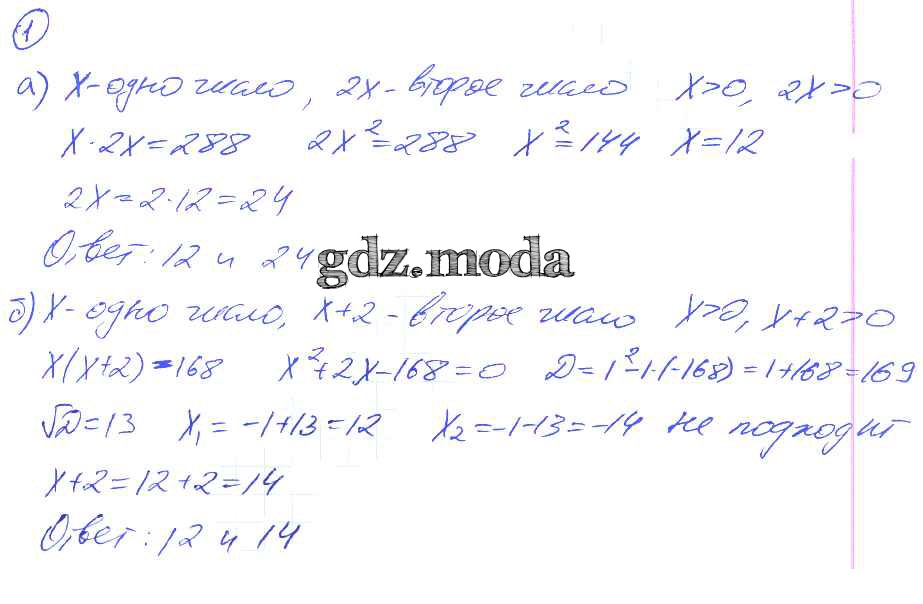 1
а) х-одно число, 2х-второе число х>0, 2х>0
х·2х=288 2х²=288 х²=144 х=12
2х=2·12=24
Ответ: 12 и 24
gdz.moda
б) х-одно число, х+2-второе число х>0, х+2>0
х(х+2)=168 х²+2х-168=0 D=1²-1·(-168)=1+168=169
√D=13 х₁=-1+13=12 х₂=-1-13=-14 не подходит
х+2=12+2=14
Ответ: 12 и 14